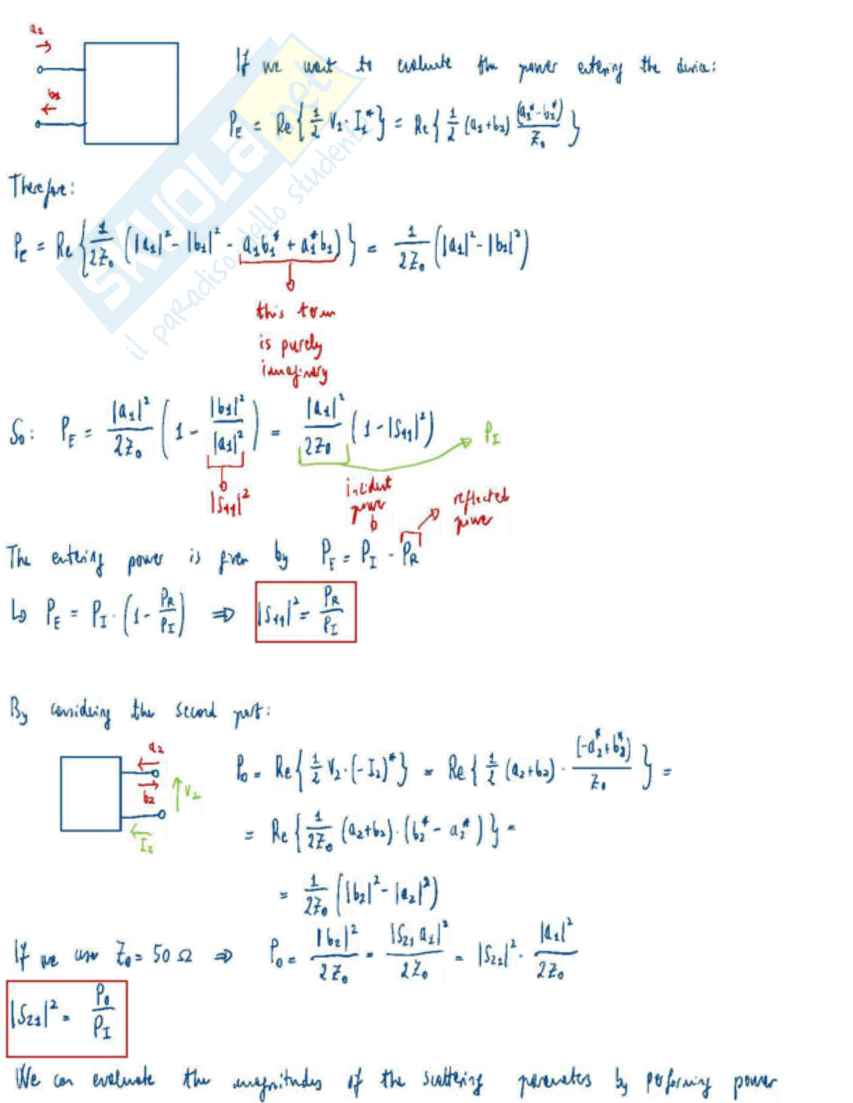 a₂
b₂
If we want to evaluate the power entering the device:
P_E = Re{ 1/2 V₁·I₁* } = Re{ 1/2 (a₁+b₁) (a₁*-b₁*)/Z₀ }
Therefore:
P_E = Re{ 1/2Z₀ (|a₁|² - |b₁|² - a₁b₁* + a₁*b₁) } = 1/2Z₀ (|a₁|² - |b₁|²)
this term
is purely
imaginary
So: P_E = |a₁|²/2Z₀ (1 - |b₁|²/|a₁|²) = |a₁|²/2Z₀ (1 - |S₁₁|²)
P_I
|S₁₁|²
incident
power
reflected
power
The entering power is given by P_E = P_I - P_R
↳ P_E = P_I · (1 - P_R/P_I) ⇒ |S₁₁|² = P_R/P_I
By considering the second port:
a₂
b₂
V₂
I₂
P₀ = Re{ 1/2 V₂·(-I₂)* } = Re{ 1/2 (a₂+b₂) · (-a₂*+b₂*)/Z₀ } =
= Re{ 1/2Z₀ (a₂+b₂)·(b₂* - a₂*) } =
= 1/2Z₀ (|b₂|² - |a₂|²)
If we use Z₀ = 50 Ω ⇒ P₀ = |b₂|²/2Z₀ = |S₂₁ a₁|²/2Z₀ = |S₂₁|² · |a₁|²/2Z₀
|S₂₁|² = P₀/P_I
We can evaluate the magnitudes of the scattering parameters by performing power
SKUOLA.net
il paradiso dello studente